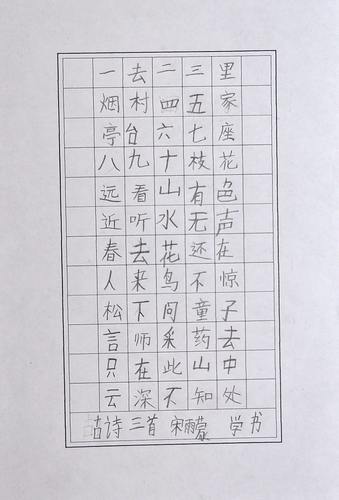 一去二三里
烟村四五家
亭台六七座
八九十枝花
远看山有色
近听水无声
春去花还在
人来鸟不惊
松下问童子
言师采药去
只在此山中
云深不知处
古诗三首 宋雨蒙 学书